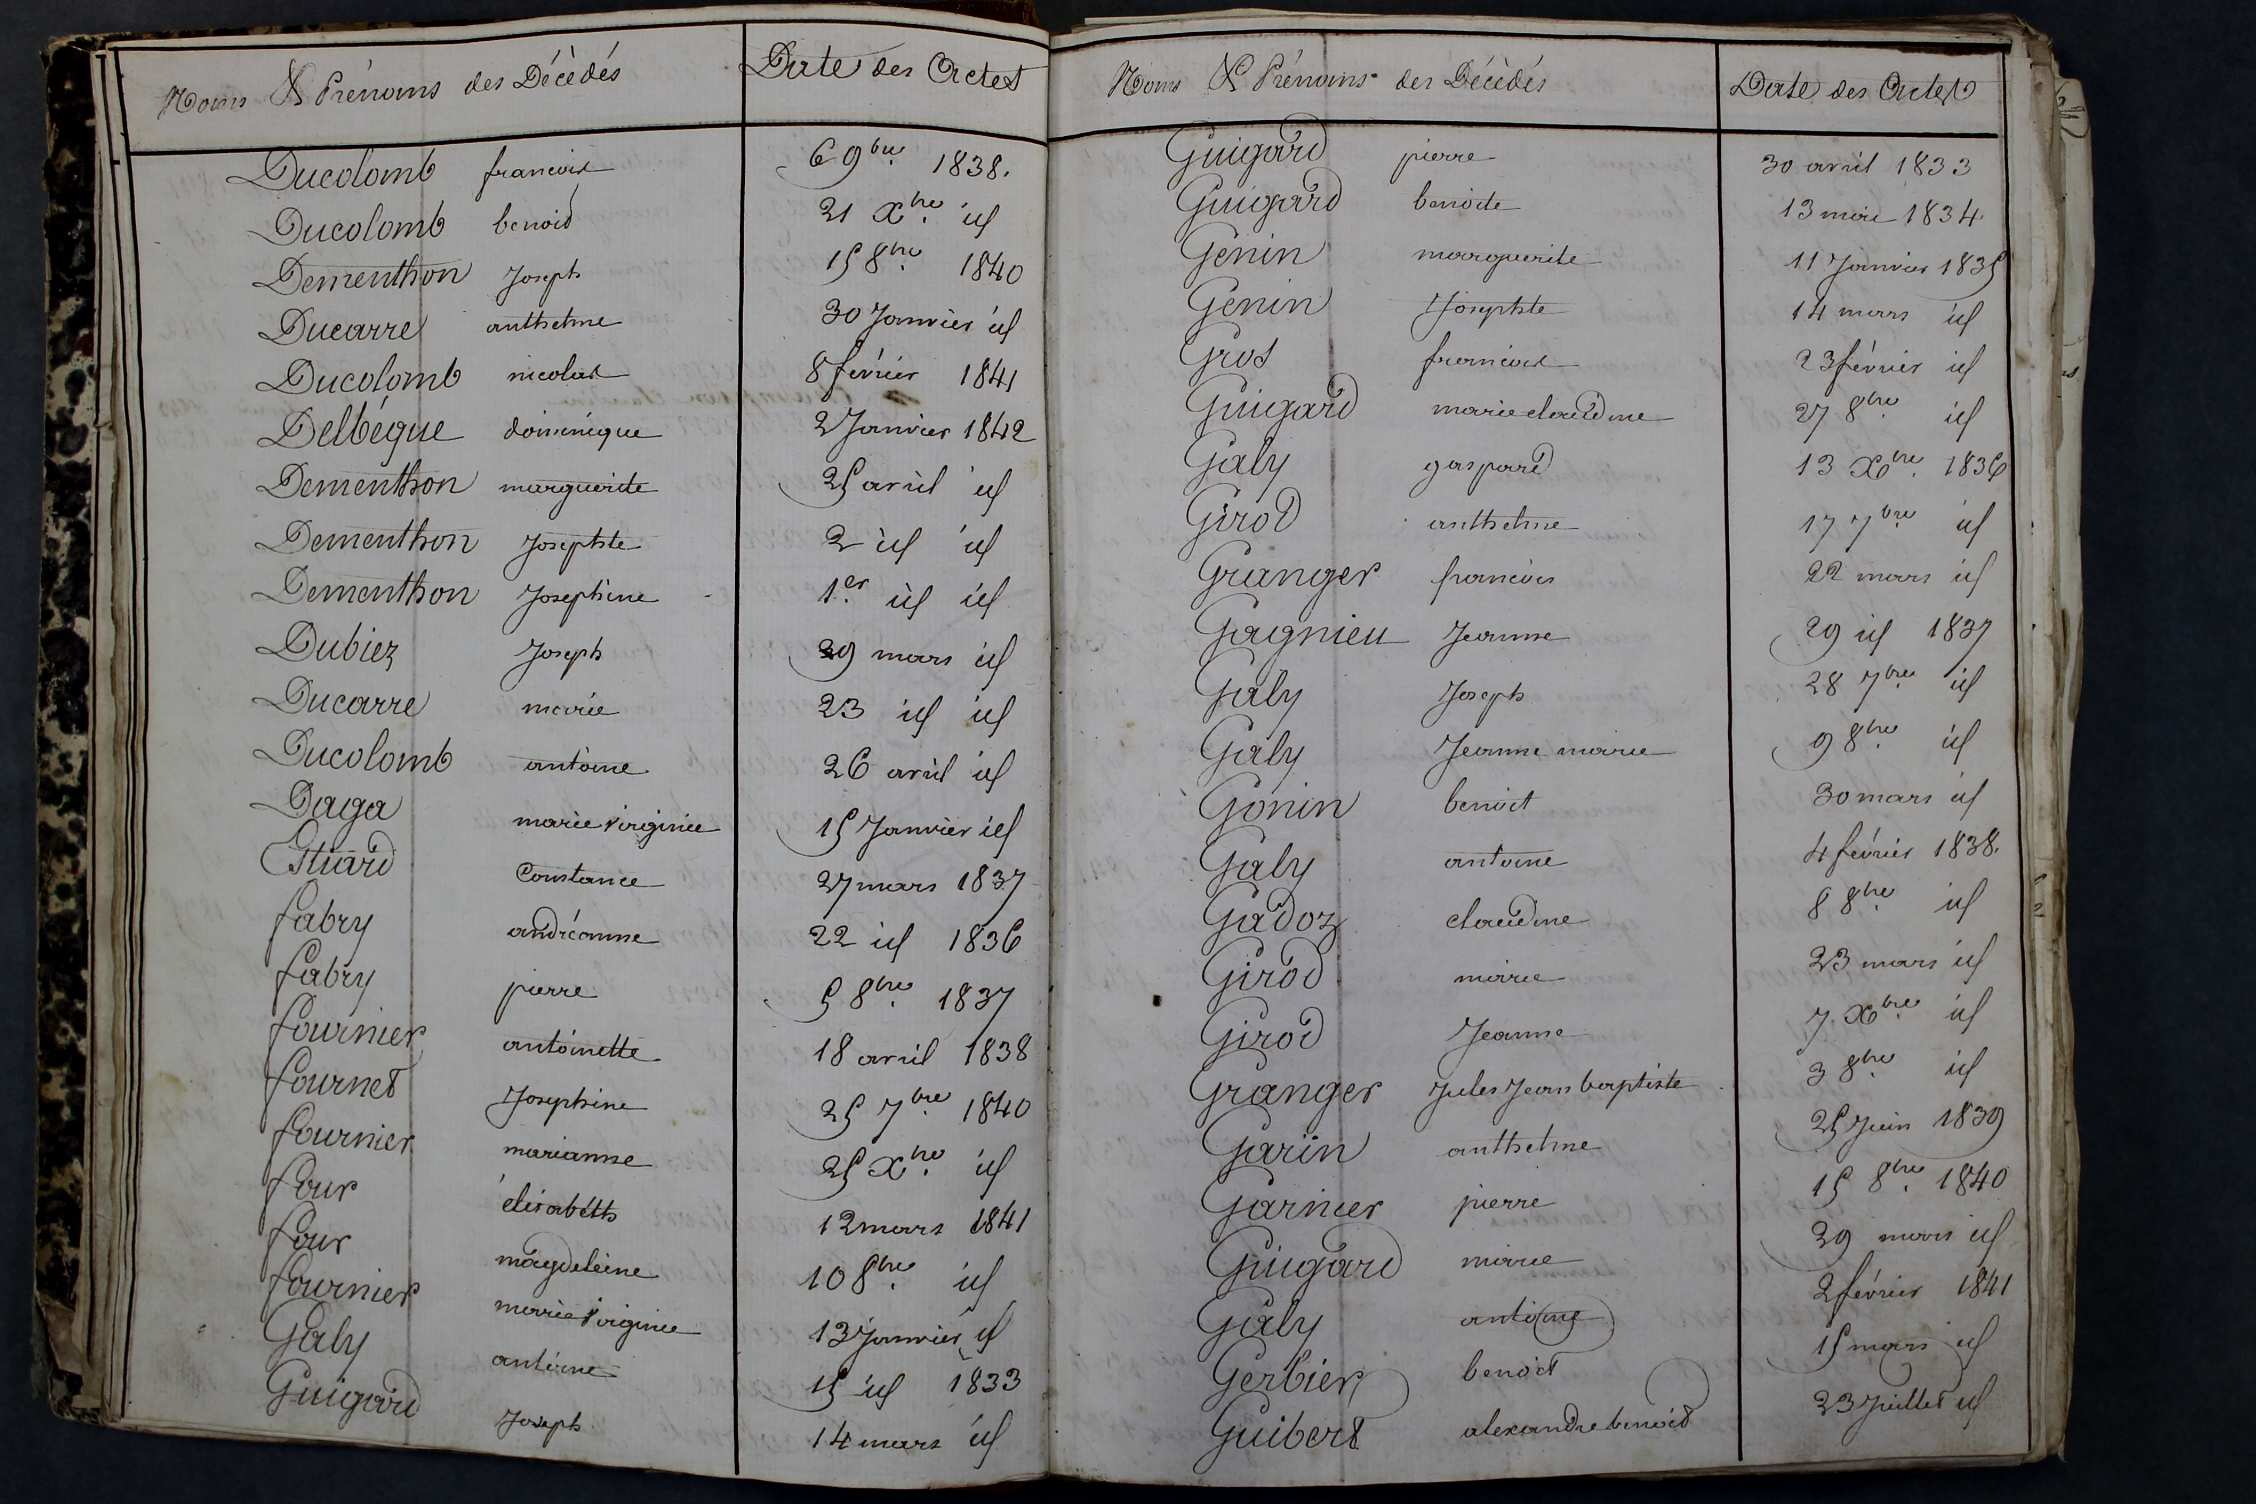 Noms & Prénoms des Décédés Date des Actes
Ducolomb francois 6 9bre 1838.
Ducolomb benoid 21 Xbre id
Dementhon Joseph 15 8bre 1840
Ducarre anthelme 30 Janvier id
Ducolomb nicolas 8 février 1841
Delbégue dominique 2 Janvier 1842
Dementhon marguerite 25 avril id
Dementhon Josephte 2 id id
Dementhon Josephine 1er id id
Dubiez Joseph 29 mars id
Ducarre marie 23 id id
Ducolomb antoine 26 avril id
Daga marie virginie 15 Janvier id
Constance 27 mars 1837
fabry andréanne 22 id 1836
fabry pierre 5 8bre 1837
fournier antoinette 18 avril 1838
fournet Josephine 25 7bre 1840
fournier marianne 25 Xbre id
four élisabeth 12 mars 1841
four magdeleine 10 8bre id
fournier marie virginie 13 Janvier id
Galy antoine 15 id 1833
Guigard Joseph 14 mars id
Noms & Prénoms des Décédés Date des Actes
Guigard pierre 30 avril 1833
Guigard benoite 13 mai 1834
Genin marguerite 11 Janvier 1835
Genin Josephte 14 mars id
Gros francois 23 février id
Guigard marie claudine 27 8bre id
Galy gaspard 13 Xbre 1836
Girod anthelme 17 7bre id
Granger francois 22 mars id
Gagnieu Jeanne 29 id 1837
Galy Joseph 28 7bre id
Galy Jeanne marie 9 8bre id
Gonin benoit 30 mars id
Galy antoine 4 février 1838.
Gadoz claudine 8 8bre id
Girod marie 23 mars id
Girod Jeanne 7 Xbre id
Granger Jules Jean baptiste 3 8bre id
Garin anthelme 25 Juin 1839
Garnier pierre 15 8bre 1840
Guigard marie 29 mars id
Galy antoine 2 février 1841
Gerbier benoit 15 mars id
Guibert alexandre benoid 23 Juillet id